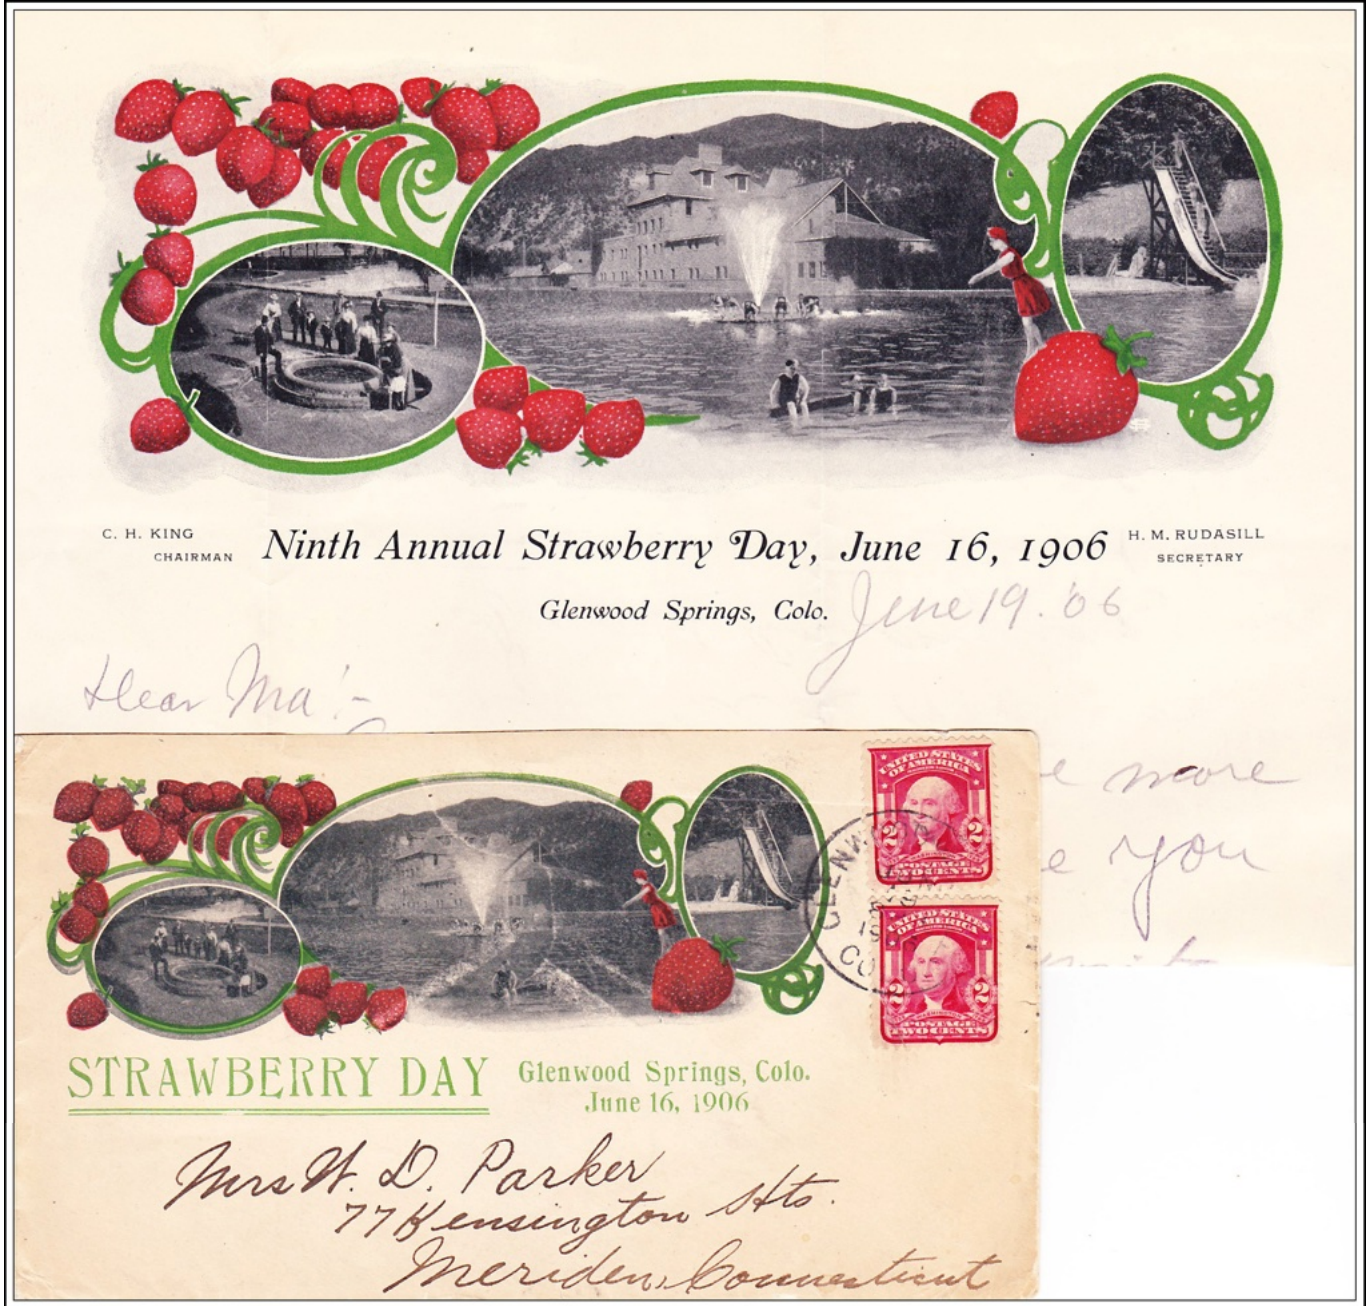 C. H. KING
CHAIRMAN
Ninth Annual Strawberry Day, June 16, 1906
H. M. RUDASILL
SECRETARY
Glenwood Springs, Colo.
June 19. '06
Dear Ma:-
more
you
UNITED STATES
OF AMERICA
2 2
POSTAGE
TWO CENTS
GLENWOOD
CO
UNITED STATES
OF AMERICA
2 2
POSTAGE
TWO CENTS
STRAWBERRY DAY
Glenwood Springs, Colo.
June 16, 1906
Mrs W. D. Parker
77 Kensington Hts.
Meriden, Connecticut